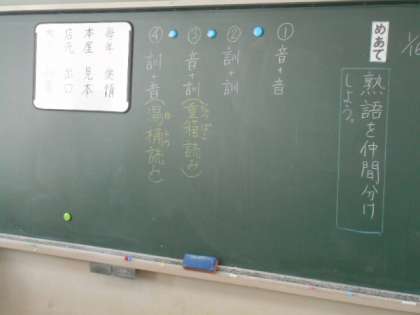 めあて
熟語を仲間分け
しよう。
①音+音
②訓+訓
③音+訓(重箱読み)
④訓+音(湯桶読み)
毎年 表情
本屋 見本
店先 出口